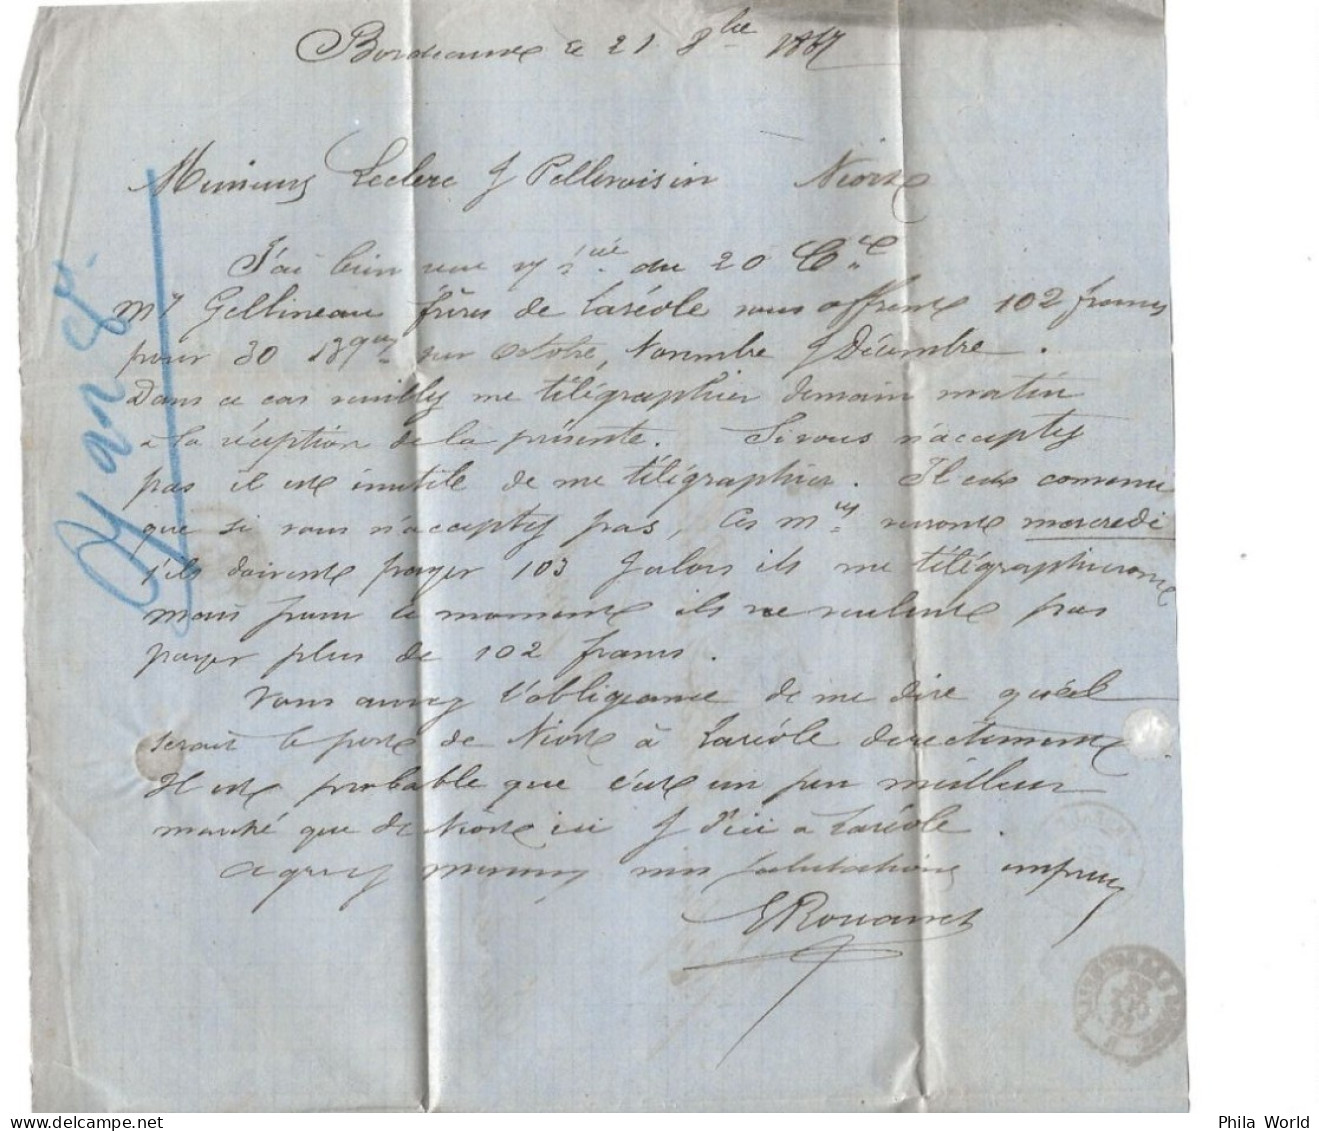 Bordeaux le 21 8bre 1867
Messieurs Leclerc & Pellevoisin Niort
J'ai bien reçu du 20 Ct
Mrs Gellineau frères de Laréole vous offrent 102 francs
pour 30 sur Octobre, Novembre & Décembre.
Dans ce cas veuillez me télégraphier demain matin
à la réception de la présente. Si vous n'acceptez
pas il est inutile de me télégraphier. Il est convenu
que si vous n'acceptez pas, ces Mrs verront mercredi
s'ils doivent payer 103 & alors ils me télégraphieront
mais pour le moment ils ne veulent pas
payer plus de 102 francs.
Vous aurez l'obligeance de me dire quel
serait le port de Niort à Laréole directement
Il est probable que c'est un peu meilleur
marché que de Niort ici & d'ici à Laréole.
Agréez Messieurs mes salutations empressées
E Rouanet
Phila World